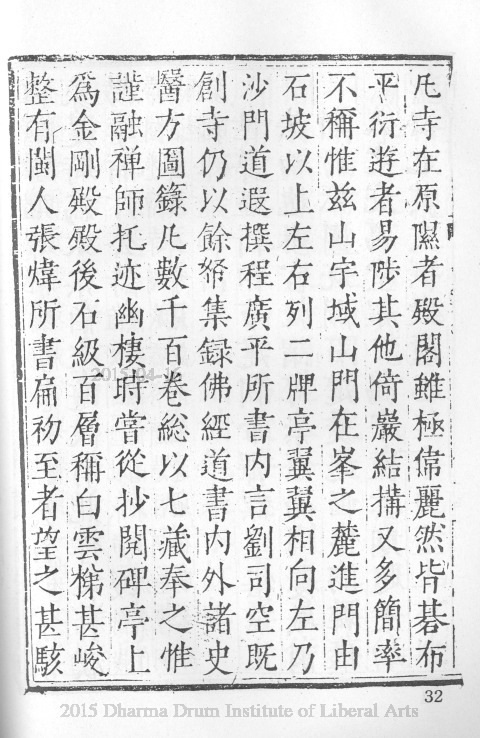 凡寺在原隰者殿閣雖極偉麗然皆碁布
平衍遊者易陟其他倚巖結搆又多簡率
不稱惟茲山宇域山門在峯之麓進門由
石坡以上左右列二牌亭翼翼相向左乃
沙門道遐撰程廣平所書内言劉司空既
創寺仍以餘帑集録佛經道書内外諸史
醫方圖籙凡數千百卷総以七藏奉之惟
謹融禅師托迹幽棲時嘗從抄閱碑亭上
爲金剛殿殿後石級百層稱白雲梯甚峻
整有閩人張煒所書扁初至者望之甚駭
2015-04-1
32
2015 Dharma Drum Institute of Liberal Arts